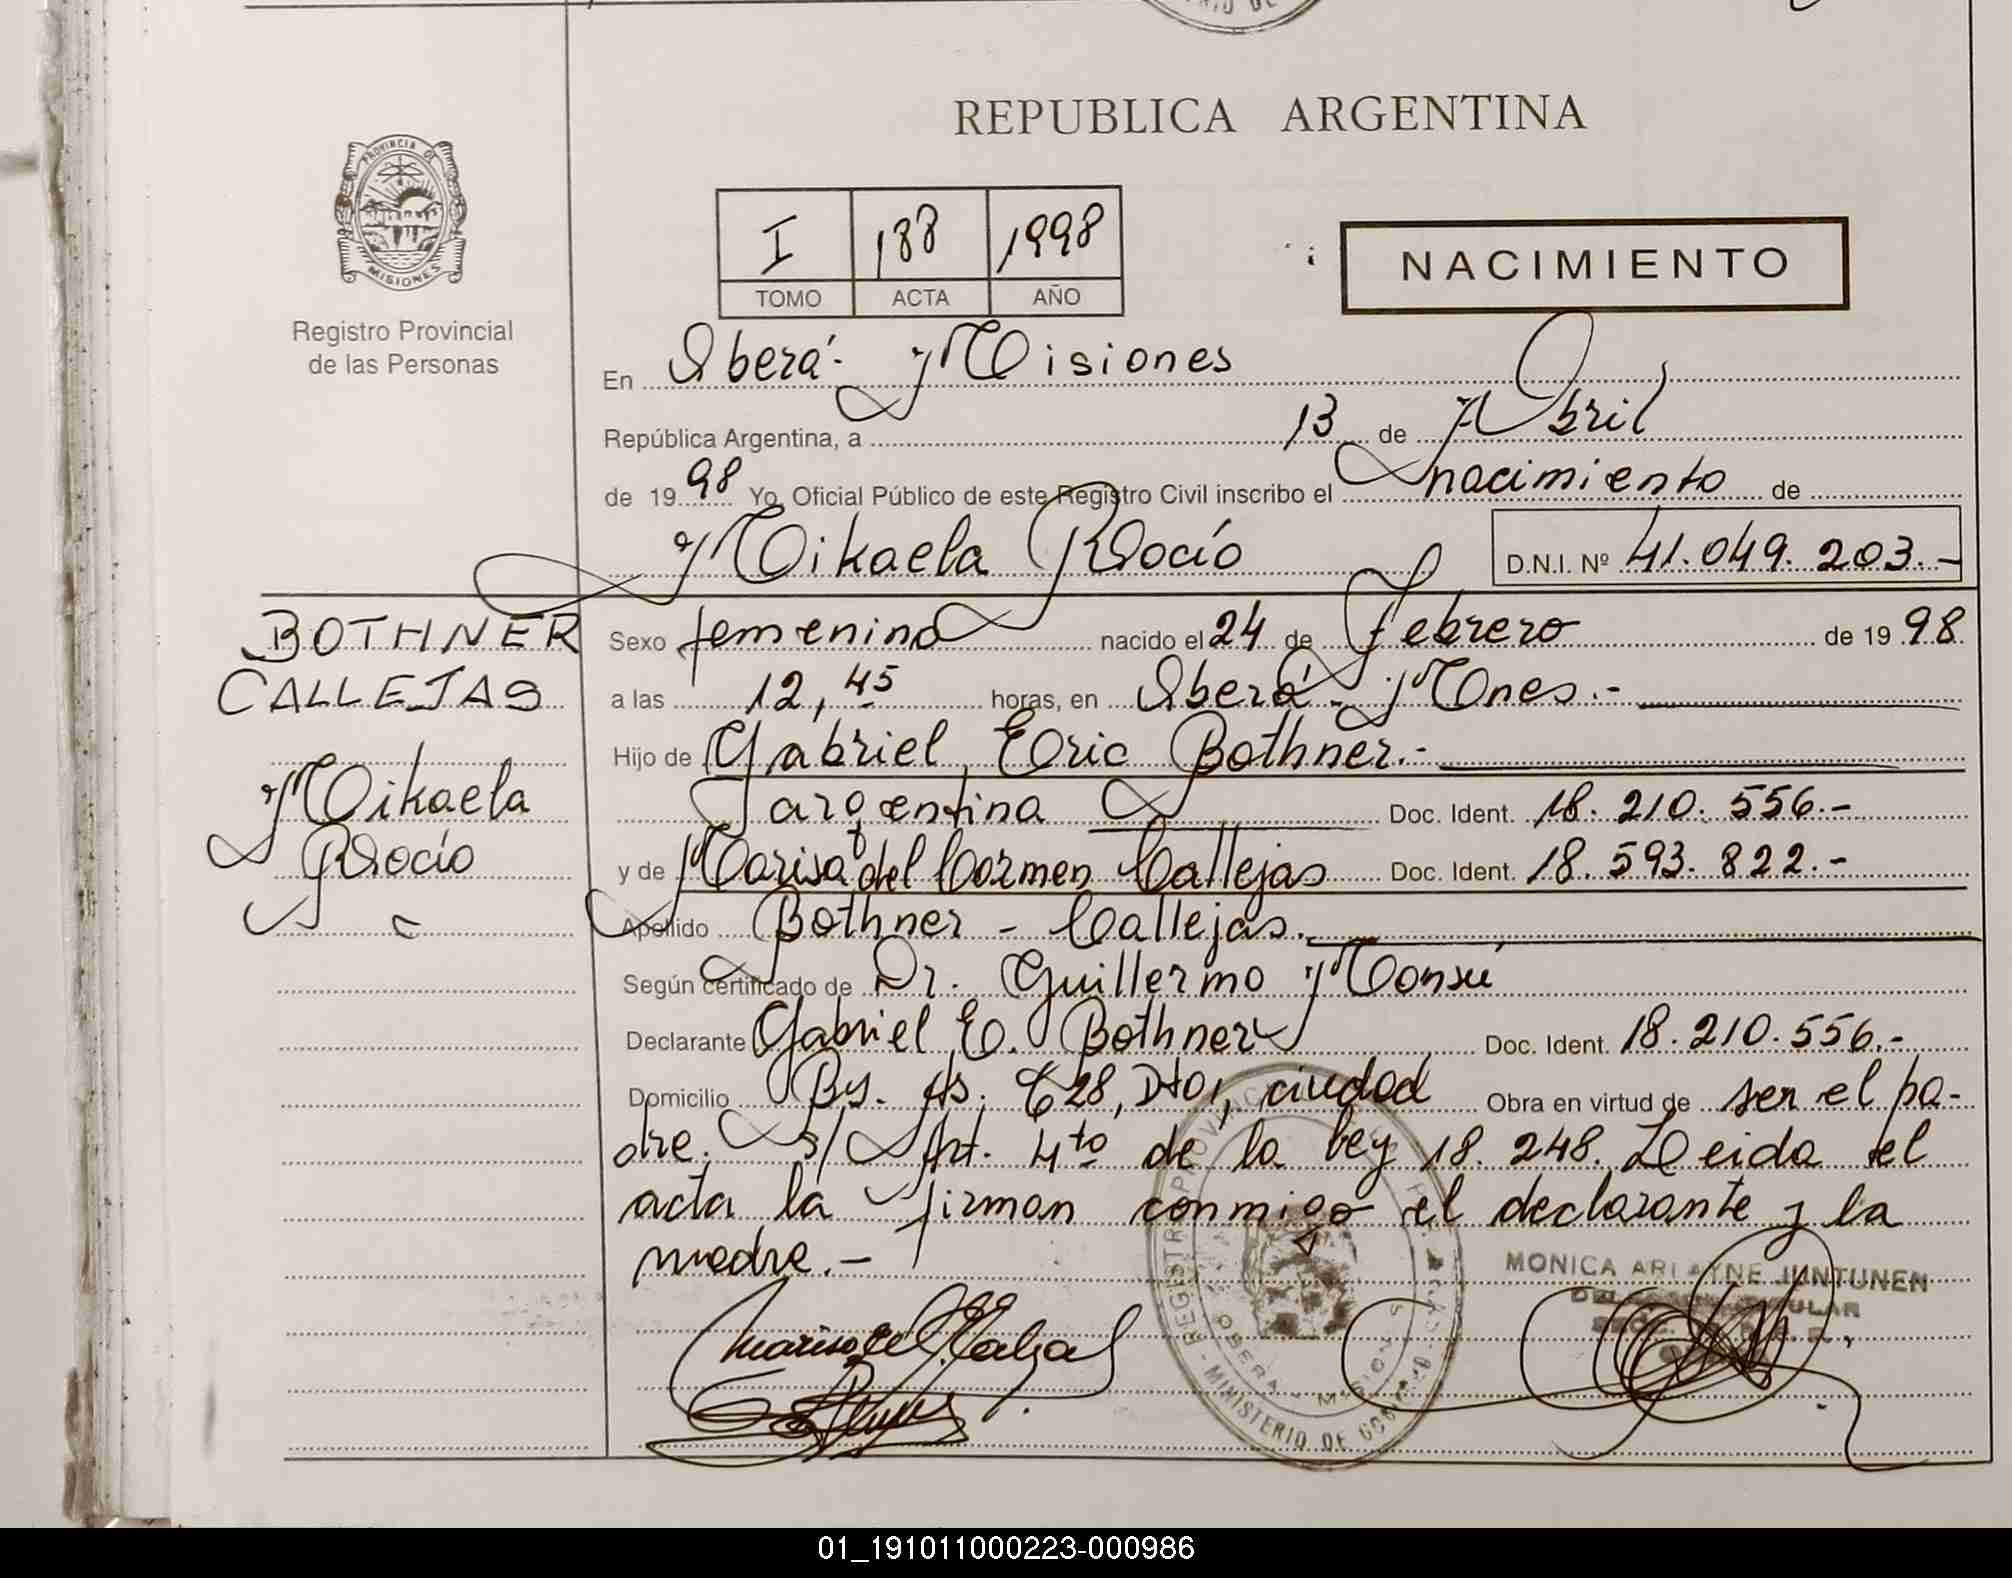 REPUBLICA ARGENTINA
PROVINCIA DE
MISIONES
Registro Provincial
de las Personas
I 188 1998
TOMO ACTA AÑO
NACIMIENTO
En Oberá - Misiones
República Argentina, a 13 de Abril
de 1998 Yo, Oficial Público de este Registro Civil inscribo el nacimiento de
Mikaela Rocío D.N.I. Nº 41.049.203.-
BOTHNER
CALLEJAS
Mikaela
Rocío
Sexo femenino nacido el 24 de Febrero de 1998
a las 12,45 horas, en Oberá - Mnes.-
Hijo de Gabriel Eric Bothner.-
argentina Doc. Ident. 18.210.556.-
y de Marisa del Carmen Callejas Doc. Ident. 18.593.822.-
Apellido Bothner - Callejas.
Según certificado de Dr. Guillermo Monsú
Declarante Gabriel E. Bothner Doc. Ident. 18.210.556.-
Domicilio Bs. As. 628, Dto 1, ciudad Obra en virtud de ser el pa-
dre. s/ Art. 4to de la ley 18.248. Leida el
acta la firman conmigo el declarante y la
madre.-
MONICA ARIADNE JUNTUNEN
OBERA - MISIONES
MINISTERIO DE GOBIERNO
01_191011000223-000986